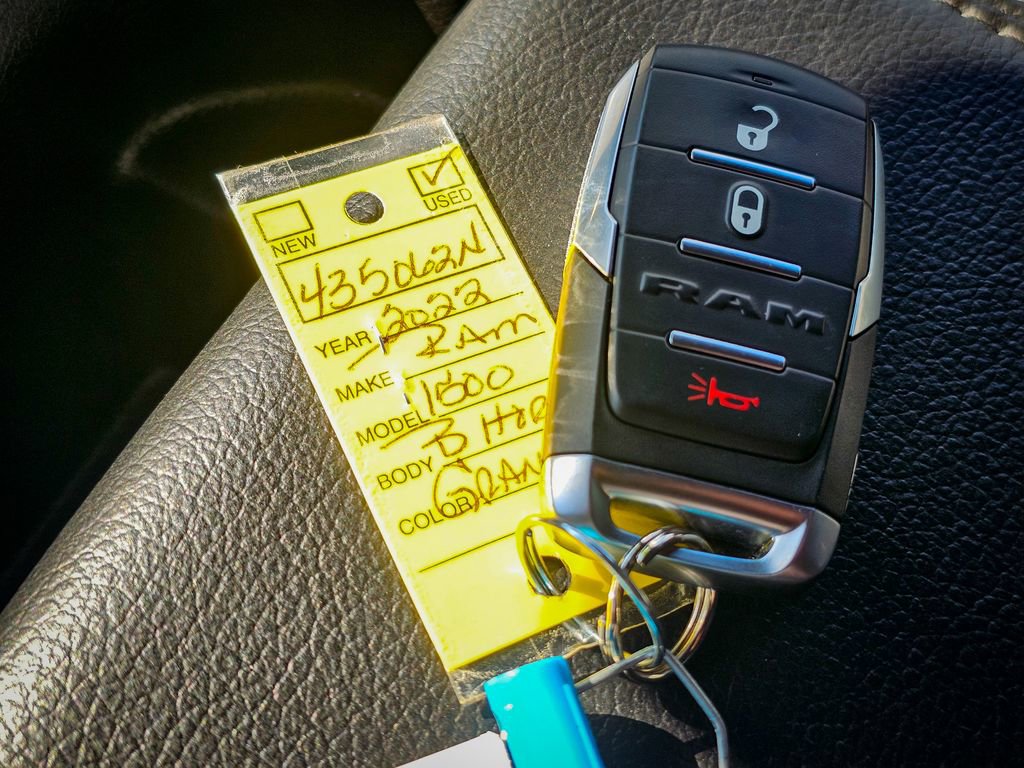 NEW
USED
435062N
YEAR 2022
MAKE RAM
MODEL 1500
BODY B HOR
COLOR GRAN
RAM